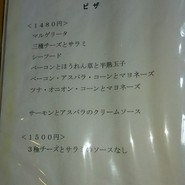 ピザ
＜１４８０円＞
マルゲリータ
三種チーズとサラミ
シーフード
ベーコンとほうれん草と半熟玉子
ベーコン・アスパラ・コーンとマヨネーズ
ツナ・オニオン・コーンとマヨネーズ
サーモンとアスパラのクリームソース
＜１５００円＞
３種チーズとサラ のソースなし